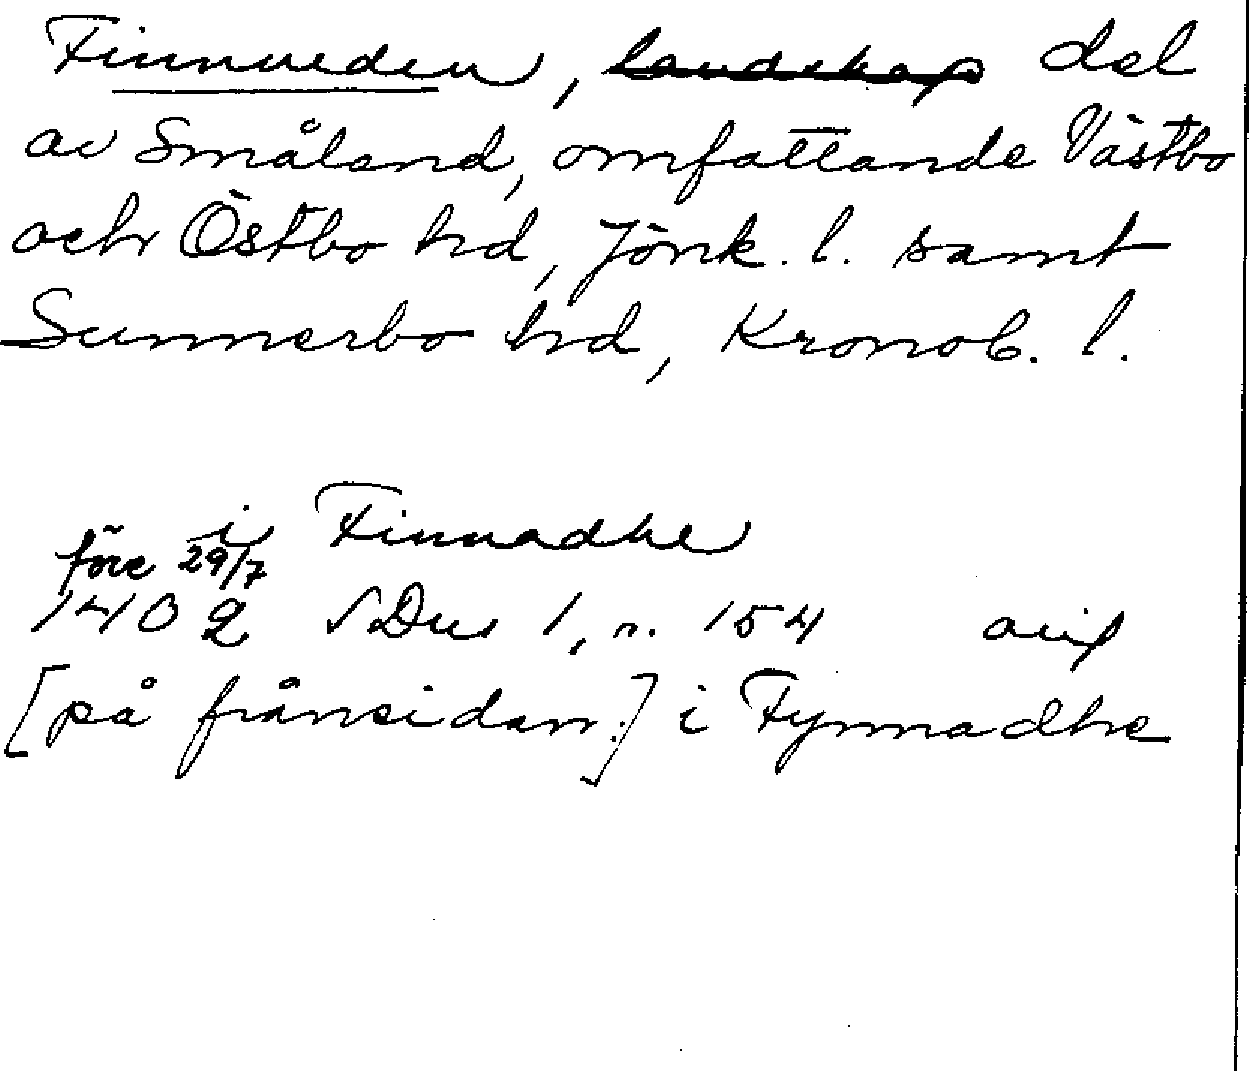 Finnveden, landskap del
av Småland, omfattande Västbo
och Östbo hd, Jönk. l. samt
Sunnerbo hd, Kronob. l.
i Finnadhe
före 29/7
1402 SDns 1, n. 154 avs
[på frånsidan:] i Fynnadhe